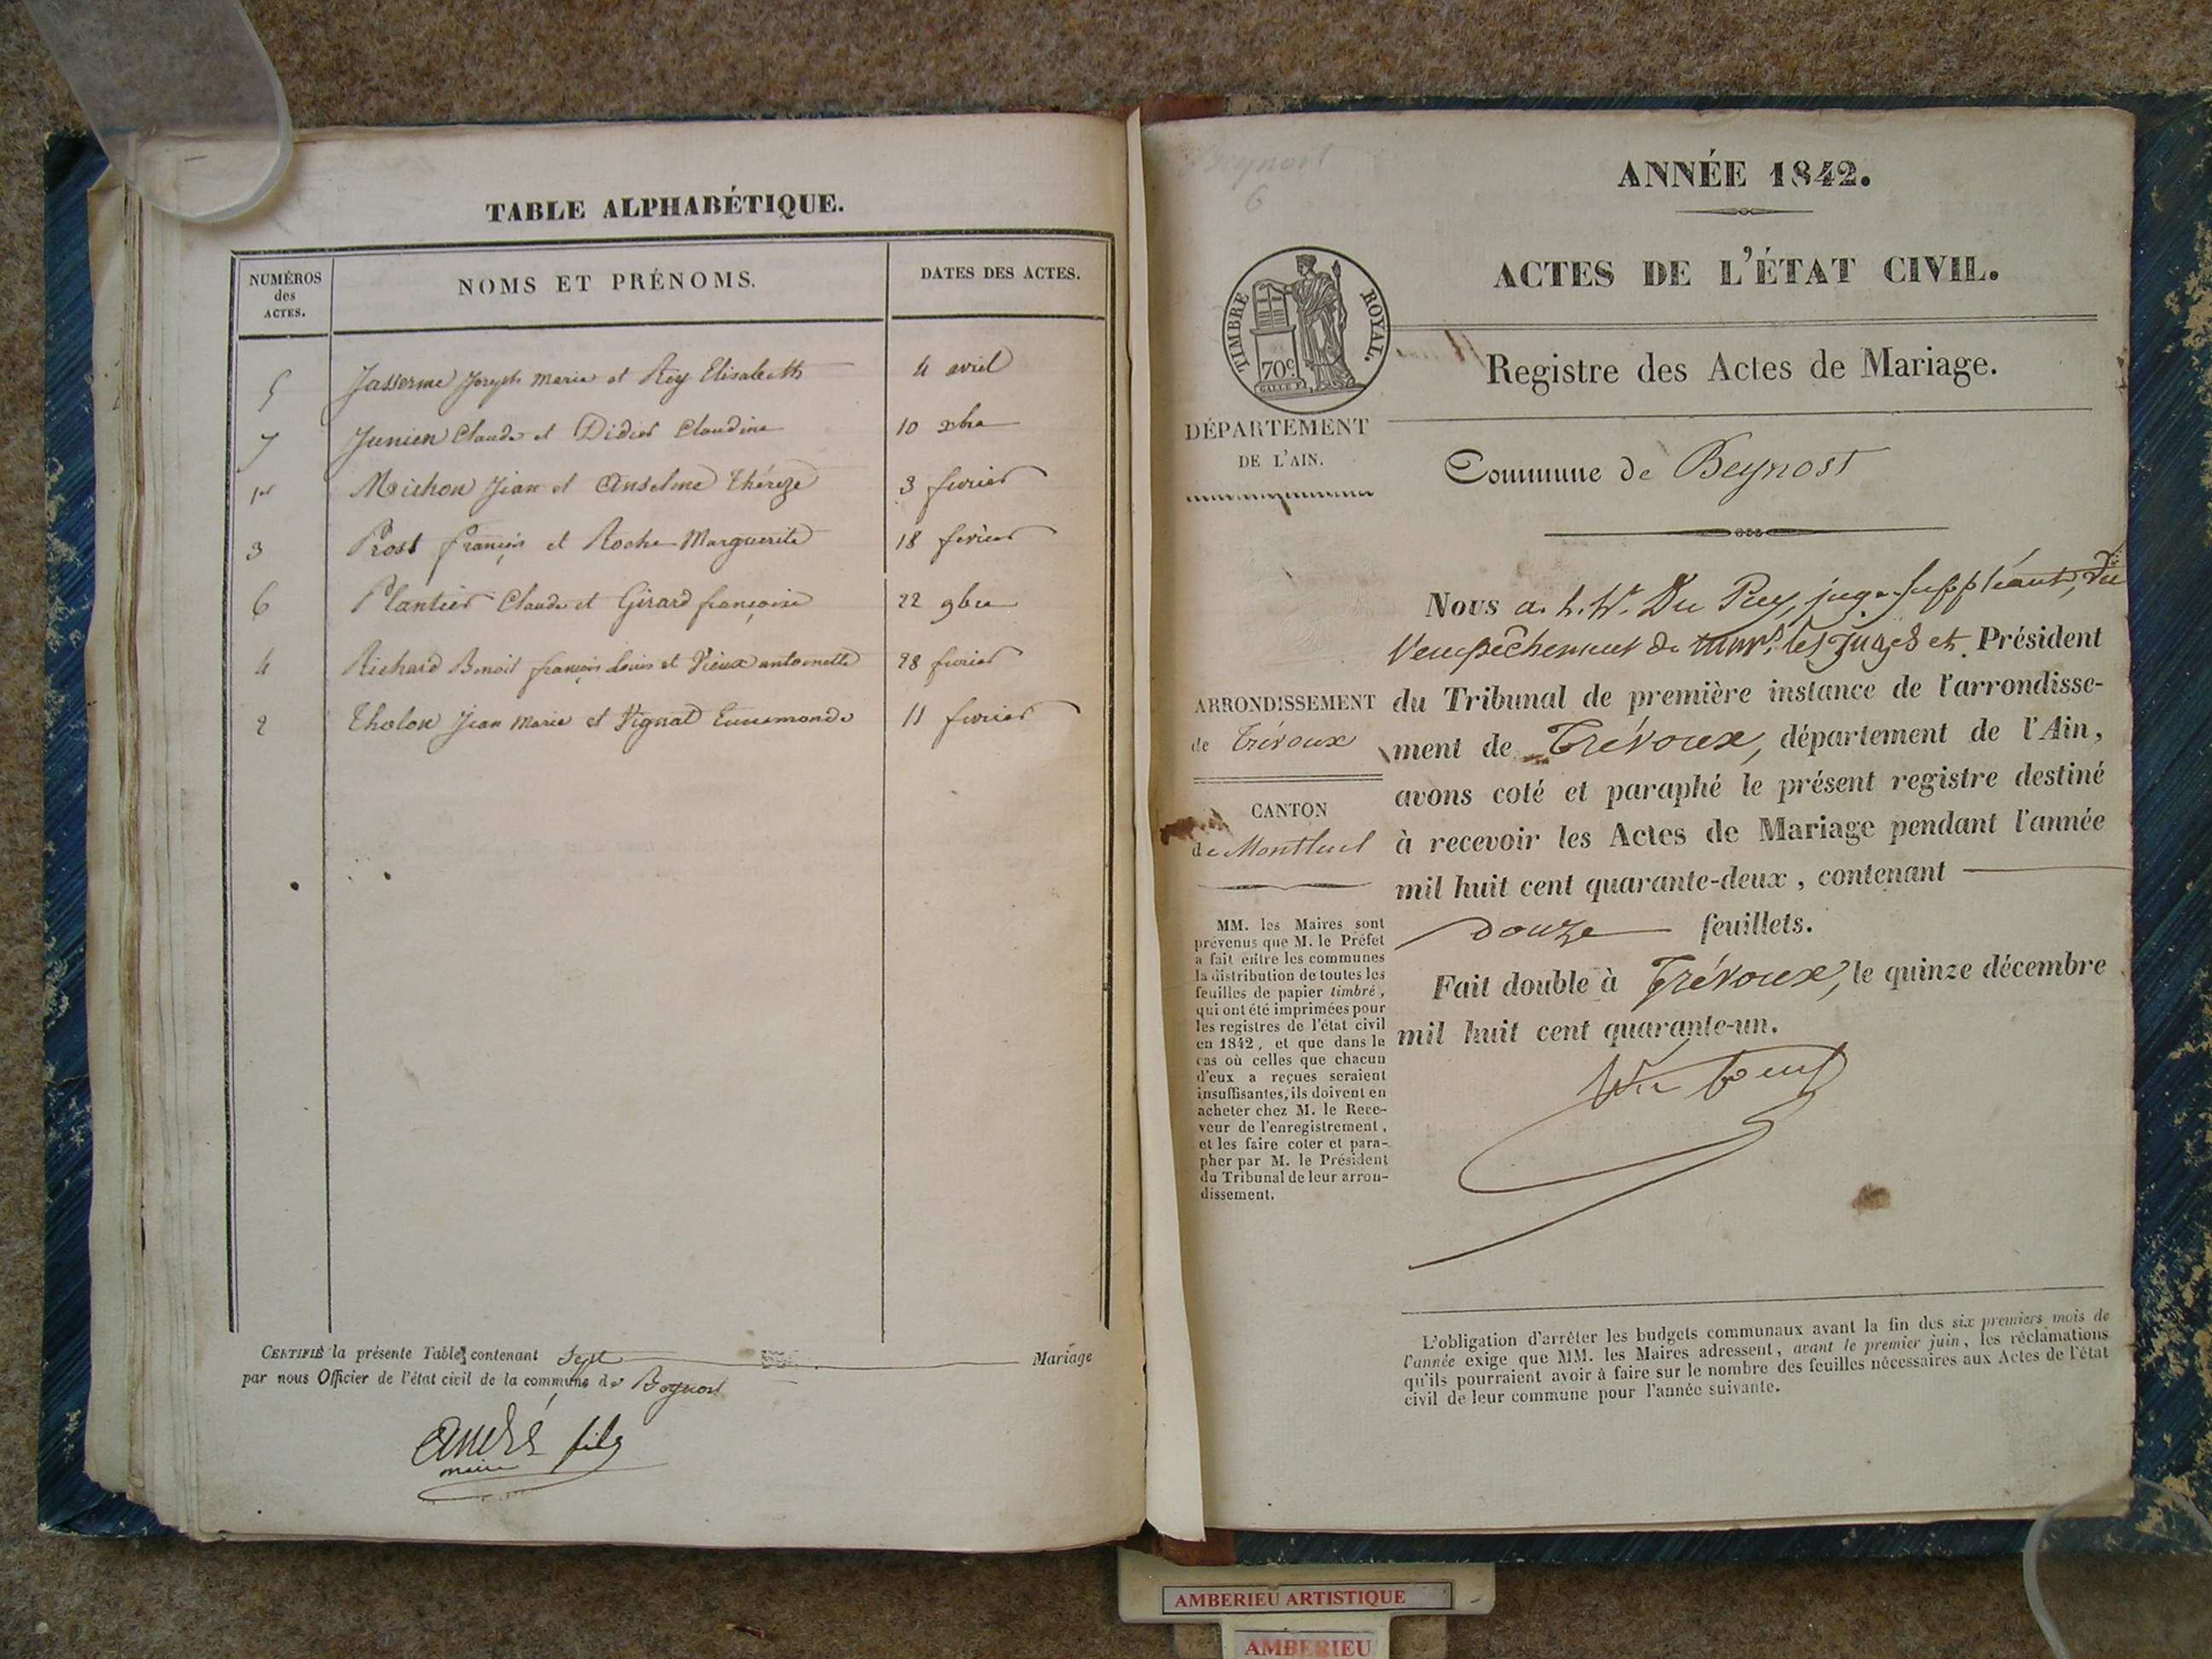 TABLE ALPHABÉTIQUE.
NUMÉROS des ACTES. NOMS ET PRÉNOMS. DATES DES ACTES.
5 Jasserme Joseph Marie et Rey Elisabeth 4 avril
7 Junien Claude et Didier Claudine 10 xbre
1er Michon Jean et Anselme Thérèze 3 fevrier
3 Prost françois et Roche Marguerite 18 fevrier
6 Plantier Claude et Girard françoise 22 9bre
4 Richard Benoit françois Louis et Vieux antoinette 28 fevrier
2 Tholon Jean Marie et Vignat Ennemonde 11 fevrier
CERTIFIÉ la présente Table contenant Sept Mariage
par nous Officier de l'état civil de la commune de Beynost
André fils
maire
Beynost
6
ANNÉE 1842.
ACTES DE L'ÉTAT CIVIL.
TIMBRE ROYAL.
70c.
Registre des Actes de Mariage.
DÉPARTEMENT
DE L'AIN.
Commune de Beynost
Nous a. h. Du Puy, juge suppléant, vu
l'empêchement de les Juges et Président
du Tribunal de première instance de l'arrondisse-
ment de Trévoux, département de l'Ain,
avons coté et paraphé le présent registre destiné
à recevoir les Actes de Mariage pendant l'année
mil huit cent quarante-deux, contenant
douze feuillets.
Fait double à Trévoux, le quinze décembre
mil huit cent quarante-un.
ARRONDISSEMENT
de Trévoux
CANTON
de Montluel
MM. les Maires sont
prévenus que M. le Préfet
a fait entre les communes
la distribution de toutes les
feuilles de papier timbré,
qui ont été imprimées pour
les registres de l'état civil
en 1842, et que dans le
cas où celles que chacun
d'eux a reçues seraient
insuffisantes, ils doivent en
acheter chez M. le Rece-
veur de l'enregistrement,
et les faire coter et para-
pher par M. le Président
du Tribunal de leur arron-
dissement.
L'obligation d'arrêter les budgets communaux avant la fin des six premiers mois de
l'année exige que MM. les Maires adressent, avant le premier juin, les réclamations
qu'ils pourraient avoir à faire sur le nombre des feuilles nécessaires aux Actes de l'état
civil de leur commune pour l'année suivante.
AMBERIEU ARTISTIQUE
AMBERIEU